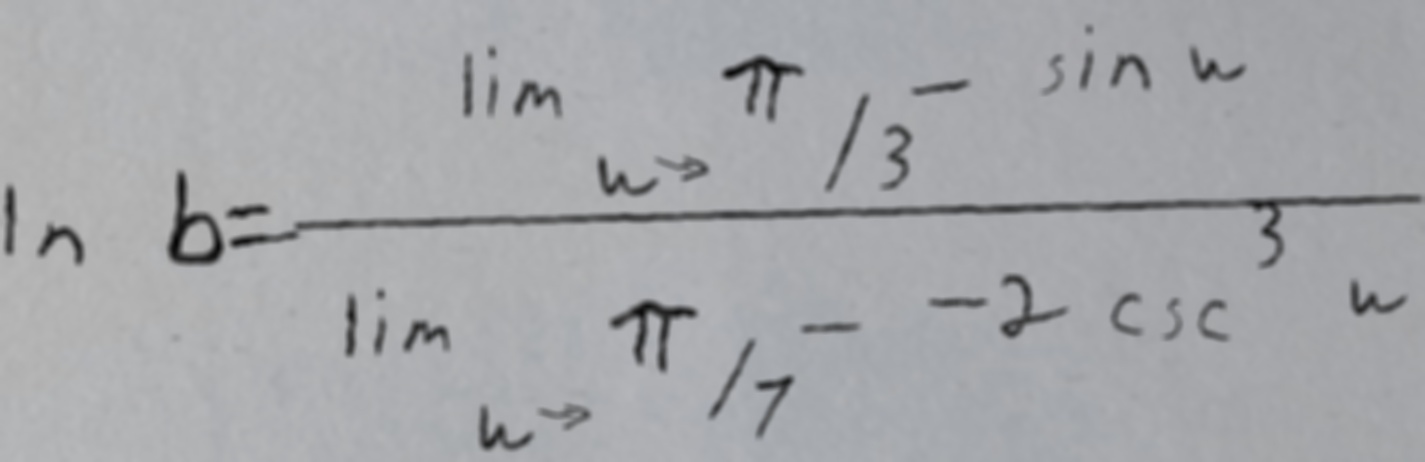 ln b = \frac{\lim_{w \to \pi/3^-} \sin w}{\lim_{w \to \pi/7^-} -2 \csc^3 w}